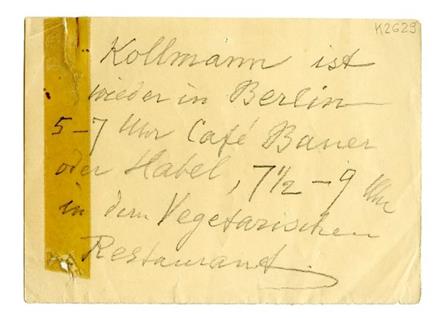 K2629
Kollmann ist
wieder in Berlin
5-7 Uhr Café Bauer
oder Habel, 7½-9 Uhr
in dem Vegetarischen
Restaurant.